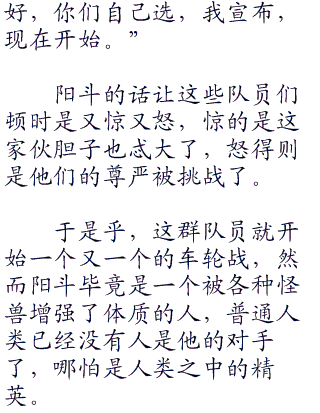 好，你们自己选，我宣布，
现在开始。”
阳斗的话让这些队员们
顿时是又惊又怒，惊的是这
家伙胆子也忒大了，怒得则
是他们的尊严被挑战了。
于是乎，这群队员就开
始一个又一个的车轮战，然
而阳斗毕竟是一个被各种怪
兽增强了体质的人，普通人
类已经没有人是他的对手
了，哪怕是人类之中的精
英。